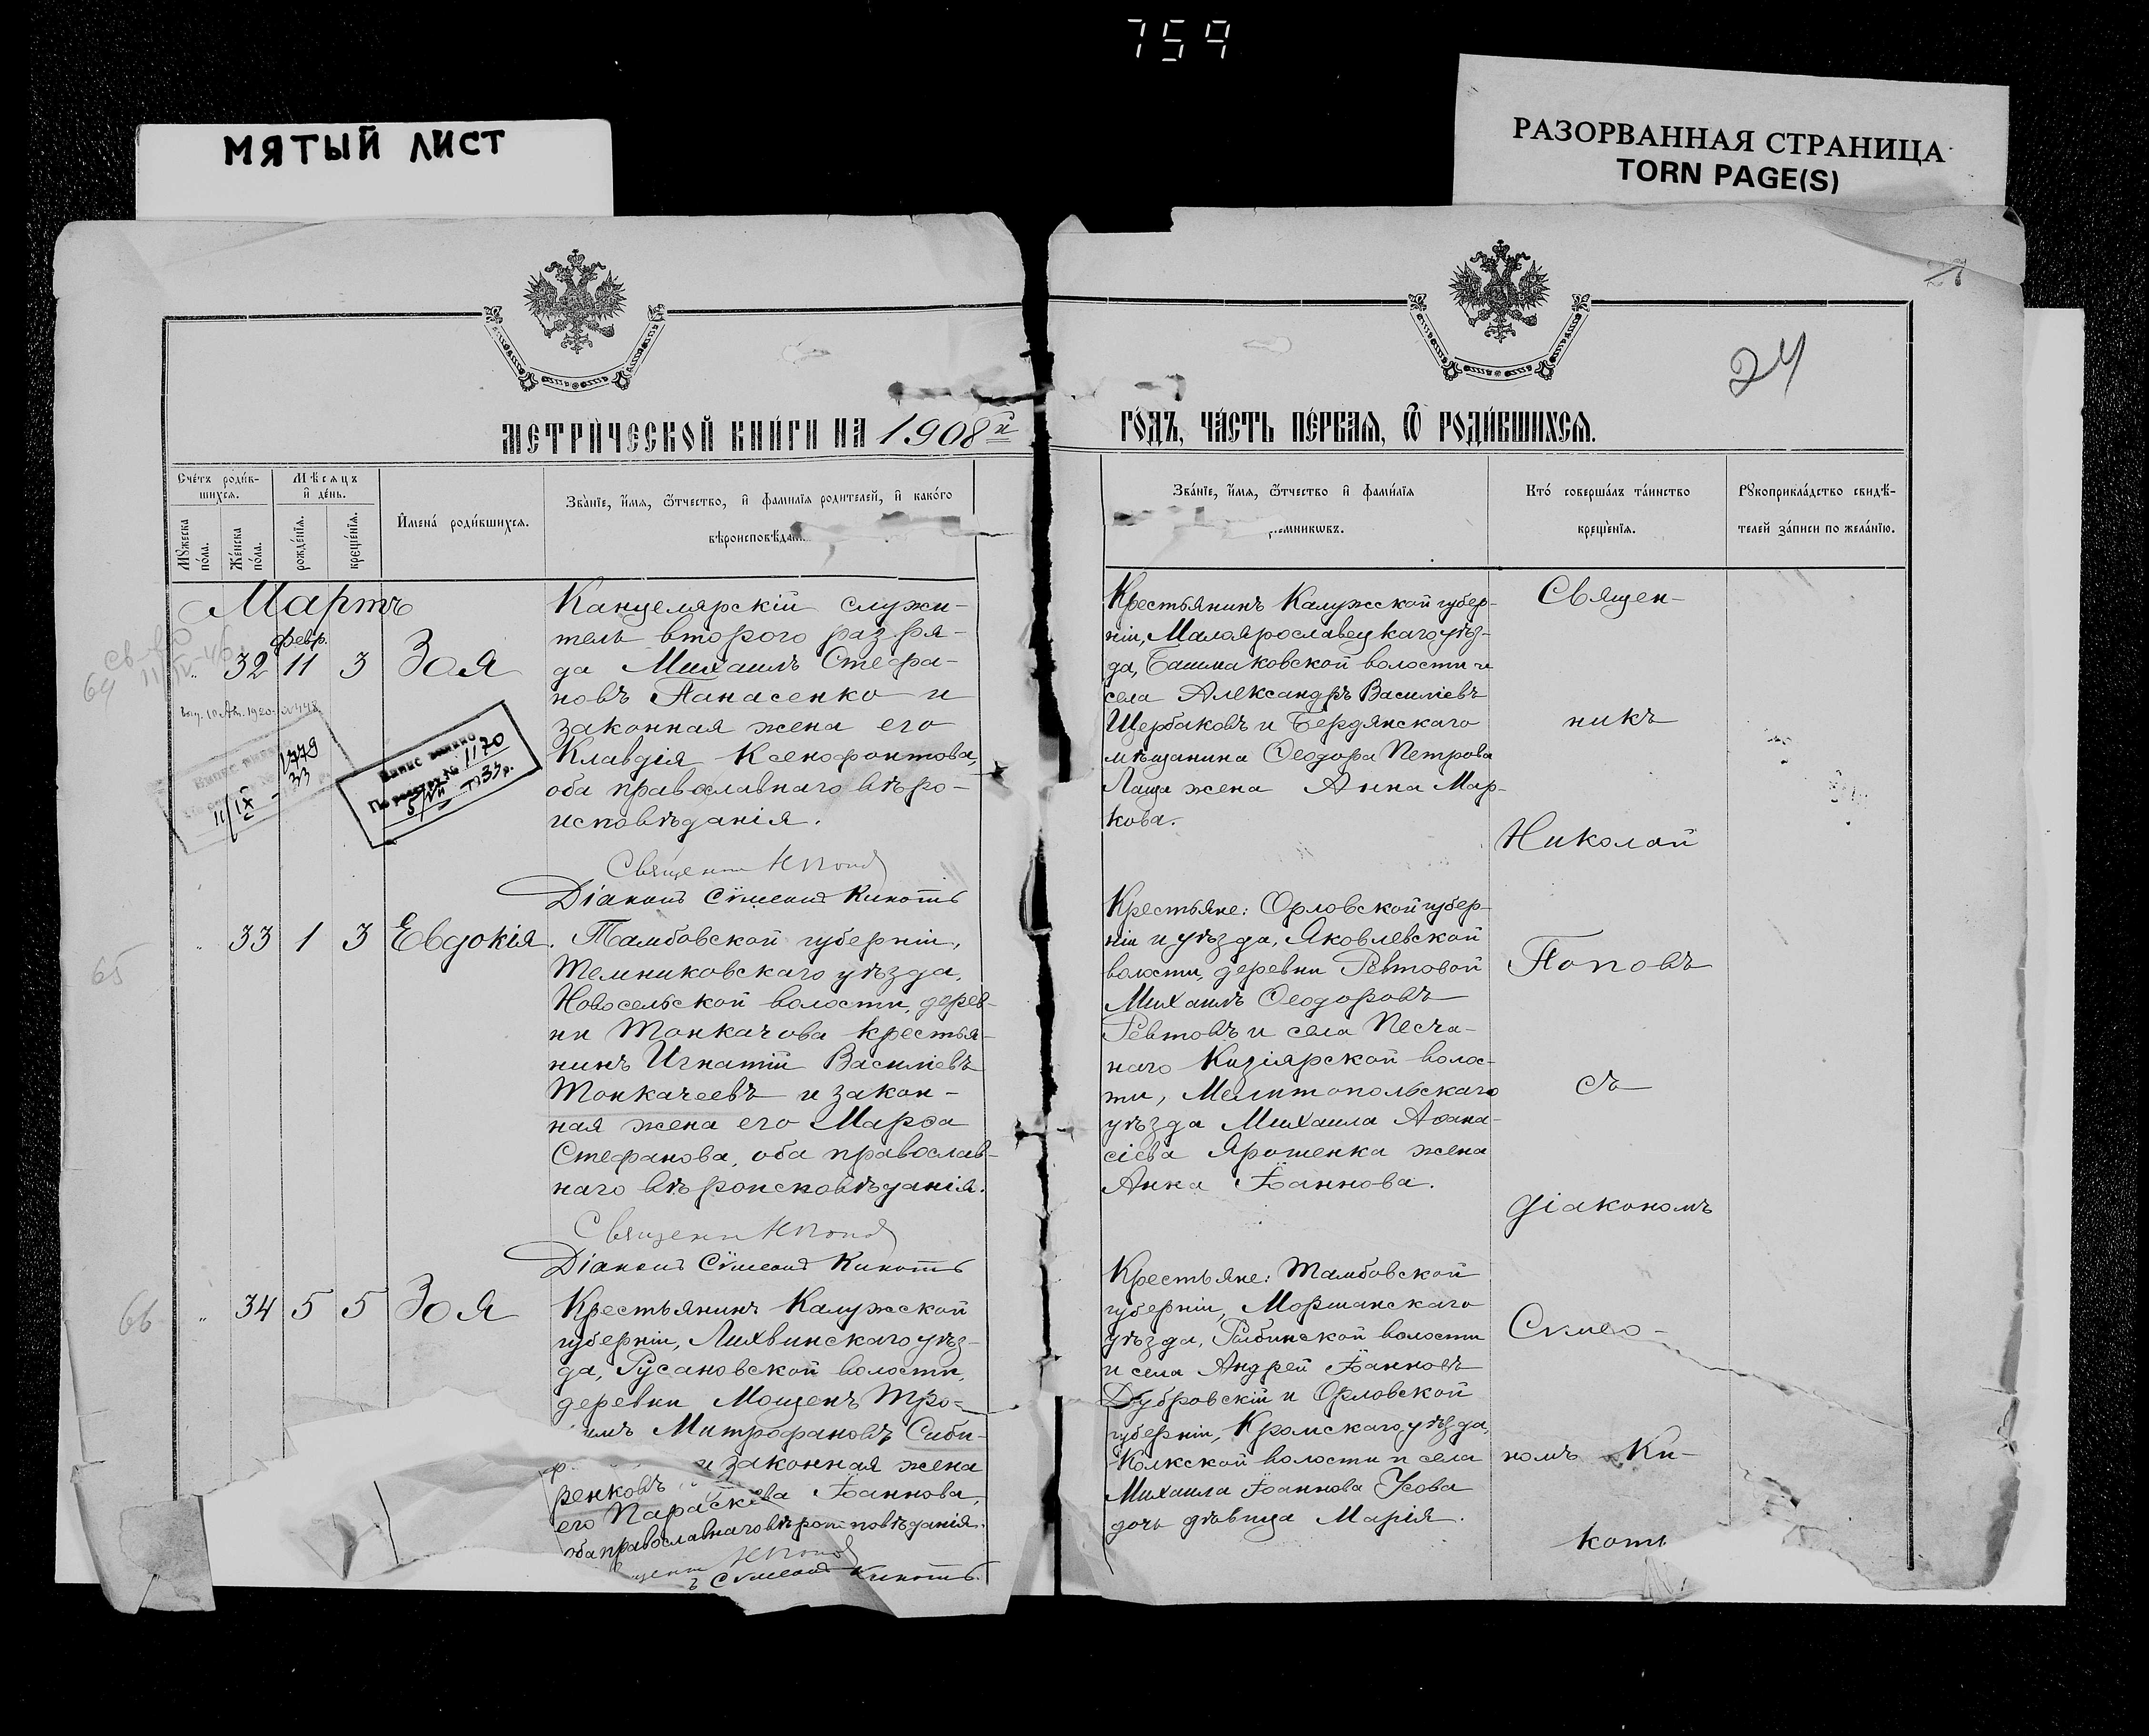 759
МЯТЫЙ ЛИСТ
РАЗОРВАННАЯ СТРАНИЦА
TORN PAGE(S)
24
МЕТРИЧЕСКОЙ КНИГИ НА 1908й
ГОДЪ, ЧАСТЬ ПЕРВАЯ, Ѿ РОДИВШИХСЯ.
Счетъ родив-
шихся.
Мѣсяцъ
и день.
Мужеска пола.
Женска пола.
рожденія.
крещенія.
Имена родившихся.
Званіе, имя, ѿтчество, и фамилія родителей, и какого
вѣроисповѣдан
Званіе, имя, ѿтчество и фамилія
емникωвъ.
Кто совершалъ таинство
крещенія.
Рукоприкладство свидѣ-
телей записи по желанію.
Мартъ
февр.
32 11 3 Зоя
Канцелярскій служи-
тель второго разря-
да Михаилъ Стефа-
новъ Панасенко и
законная жена его
Клавдія Ксенофонтова,
оба православнаго вѣро-
исповѣданія.
Священн НПопов
Діаконъ Сѵмеонъ Кикоть
Крестьянинъ Калужской губер-
ніи, Малоярославецкаго уѣз-
да, Башмаковской волости и
села Александръ Василіевъ
Щербаковъ и Бердянскаго
мѣщанина Ѳеодора Петрова
Лаща жена Анна Мар-
кова.
64
1779
33
11/IX
Випис видано
По реестр. № 1170
5/VII 1933 р.
65
33 1 3 Евдокія.
Тамбовской губерніи,
Темниковскаго уѣзда,
Новосельской волости, дерев-
ни Тонкачова крестья-
нинъ Игнатій Василіевъ
Тонкачеевъ и закон-
ная жена его Марѳа
Стефанова, оба православ-
наго вѣроисповѣданія.
Священн НПопов
Діаконъ Сѵмеонъ Кикоть
Крестьяне: Орловской губер-
ніи и уѣзда, Яковлевской
волости, деревни Ревтовой
Михаилъ Ѳеодоровъ
Ревтовъ и села Песча-
наго Кизіярской волос-
ти, Мелитопольскаго
уѣзда Михаила Аѳана-
сіева Ярошенка жена
Анна Іоаннова.
66
34 5 5 Зоя
Крестьянинъ Калужской
губерніи, Лихвинскаго уѣз-
да, Русановской волости,
деревни Мощенъ Тро-
имъ Митрофановъ Сиби-
ренковъ и законная жена
его Параскева Іоаннова,
оба православнаго вѣроисповѣданія.
щенн НПопов
ъ Сѵмеонъ Кикоть.
Крестьяне: Тамбовской
губерніи, Моршанскаго
уѣзда, Рыбинской волости
и села Андрей Іоанновъ
Дубровскій и Орловской
губерніи, Кромскаго уѣзда,
Колкской волости и села
Михаила Іоаннова Усова
дочь дѣвица Марія.
Священ-
никъ
Николай
Поповъ
съ
діакономъ
Сѵмео-
номъ Ки-
коть